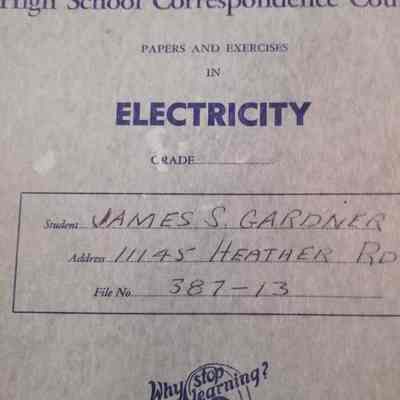 High School Correspondence Cou
PAPERS AND EXERCISES
IN
ELECTRICITY
GRADE
Student JAMES S. GARDNER
Address 11145 HEATHER RD
File No. 387-13
Why stop learning?